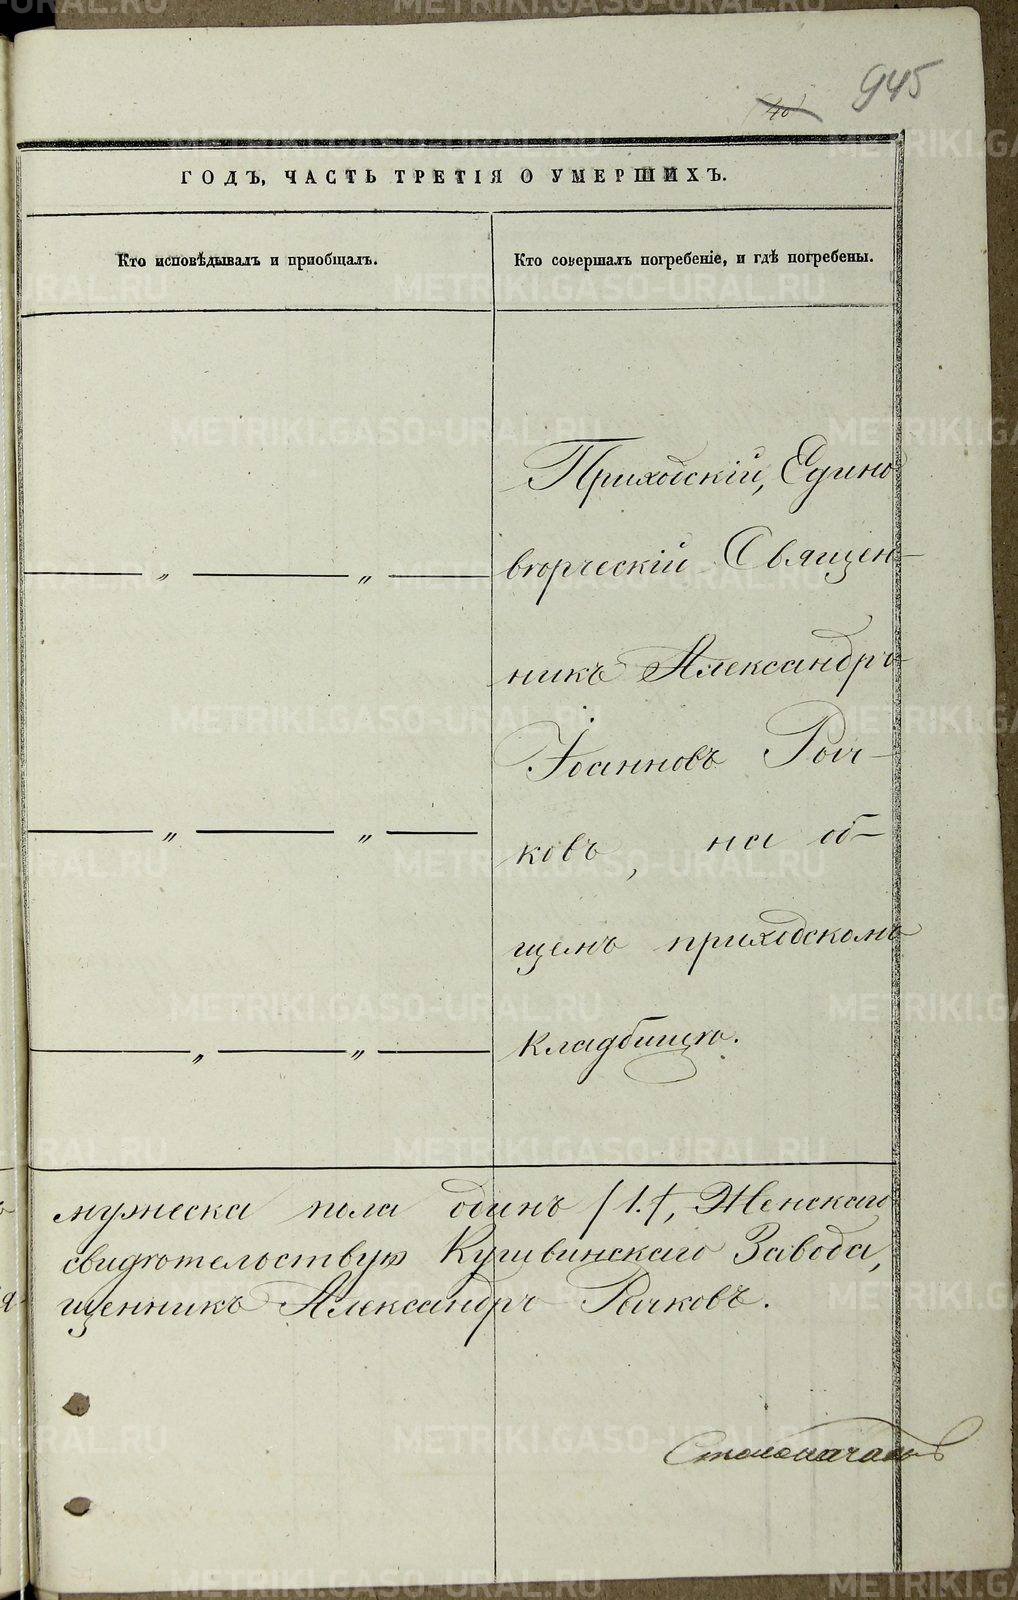 945
40
ГОДЪ, ЧАСТЬ ТРЕТІЯ О УМЕРШИХЪ.
Кто исповѣдывалъ и пріобщалъ.
Кто совершалъ погребеніе, и гдѣ погребены.
Приходскій, Едино
вѣрческій Священ-
никъ Александръ
Іоанновъ Рыч-
ковъ, на об-
щемъ приходскомъ
кладбищѣ.
мужеска пола одинъ (1.), Женскаго
свидѣтельствую Кушвинскаго Завода,
щенникъ Александръ Рычковъ.
METRIKI.GASO-URAL.RU